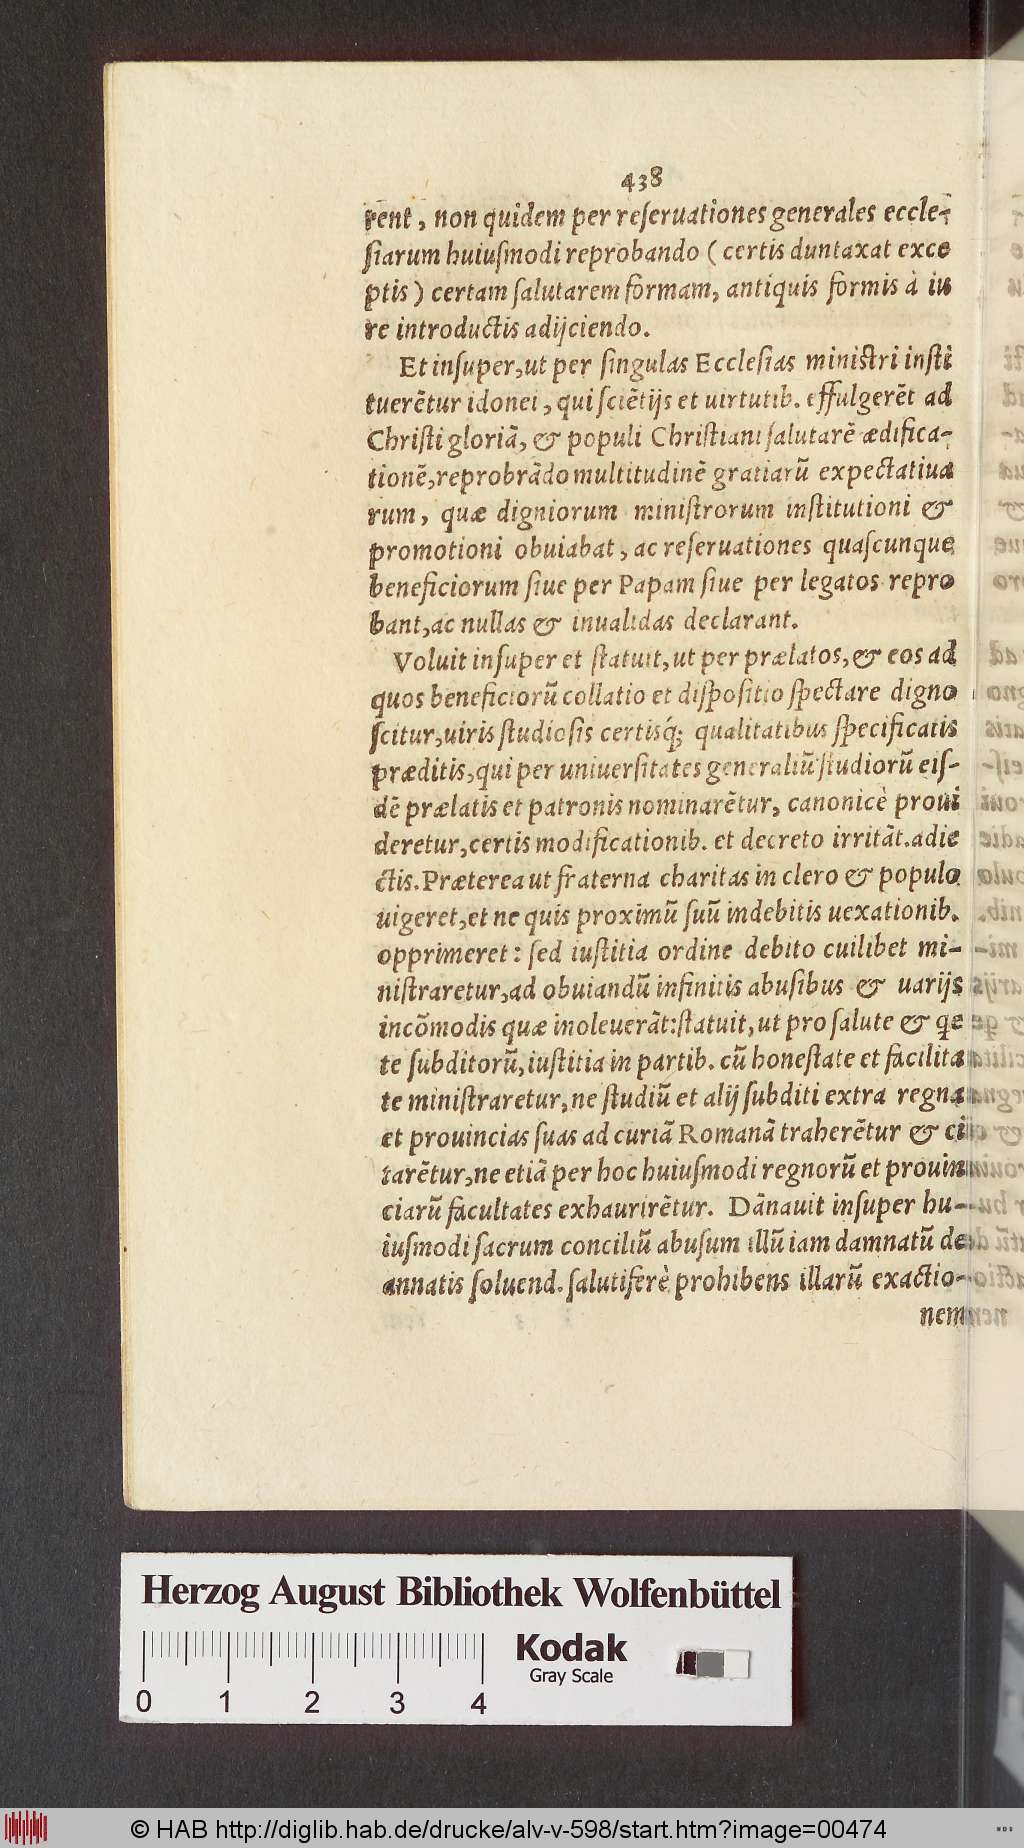 438
rent, non quidem per reſeruationes generales eccle-
ſiarum huiuſmodi reprobando (certis duntaxat exce
ptis) certam ſalutarem formam, antiquis formis à iu
re introductis adijciendo.
Et inſuper, ut per ſingulas Eccleſias miniſtri inſti
tuerẽtur idonei, qui ſciẽtijs et uirtutib. effulgerẽt ad
Chriſti gloriã, & populi Chriſtiani ſalutarẽ ædifica-
tionẽ, reprobrãdo multitudinẽ gratiarũ expectatiua
rum, quæ digniorum miniſtrorum inſtitutioni &
promotioni obuiabat, ac reſeruationes quaſcunque
beneficiorum ſiue per Papam ſiue per legatos repro
bant, ac nullas & inualidas declarant.
Voluit inſuper et ſtatuit, ut per prælatos, & eos ad
quos beneficiorũ collatio et diſpoſitio ſpectare digno
ſcitur, uiris ſtudioſis certisq́; qualitatibus ſpecificatis
præditis, qui per uniuerſitates generaliũ ſtudiorũ eiſ-
dẽ prælatis et patronis nominarẽtur, canonicè proui
deretur, certis modificationib. et decreto irritãt. adie
ctis. Præterea ut fraterna charitas in clero & populo
uigeret, et ne quis proximũ ſuũ indebitis uexationib.
opprimeret: ſed iuſtitia ordine debito cuilibet mi-
niſtraretur, ad obuiandũ infinitis abuſibus & uarijs
incõmodis quæ inoleuerãt: ſtatuit, ut pro ſalute & q̃e
te ſubditorũ, iuſtitia in partib. cũ honeſtate et facilita
te miniſtraretur, ne ſtudiũ et alij ſubditi extra regna
et prouincias ſuas ad curiã Romanã traherẽtur & ci
tarẽtur, ne etiã per hoc huiuſmodi regnorũ et prouin
ciarũ facultates exhaurirẽtur. Dãnauit inſuper hu-
iuſmodi ſacrum conciliũ abuſum illũ iam damnatũ de
annatis ſoluend. ſalutiferè prohibens illarũ exactio-
nem
Herzog August Bibliothek Wolfenbüttel
Kodak
Gray Scale
0 1 2 3 4
© HAB http://diglib.hab.de/drucke/alv-v-598/start.htm?image=00474